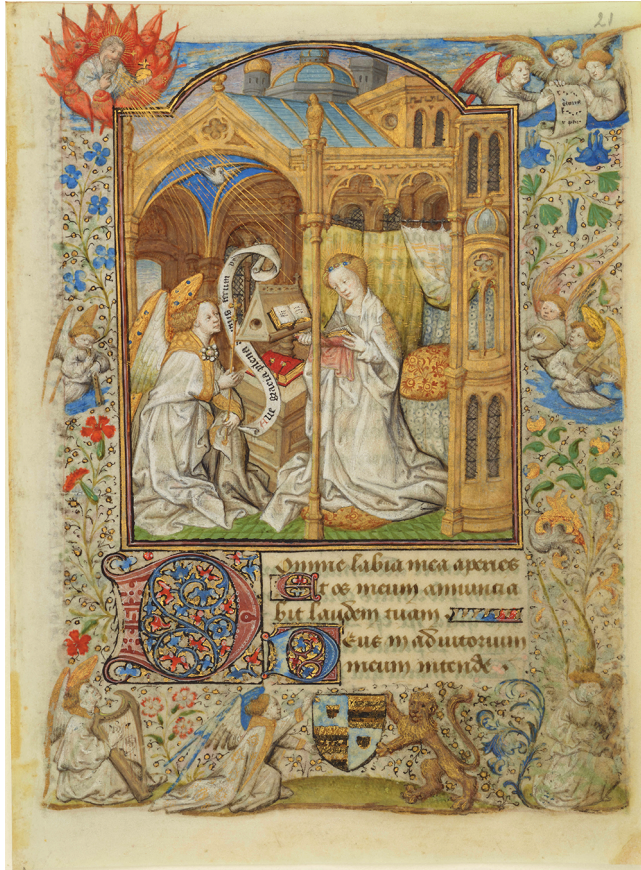 21
Aue gracia plena
Domine labia mea aperies
Et os meum annuncia
bit laudem tuam
Deus in adiutorium
meum intende.